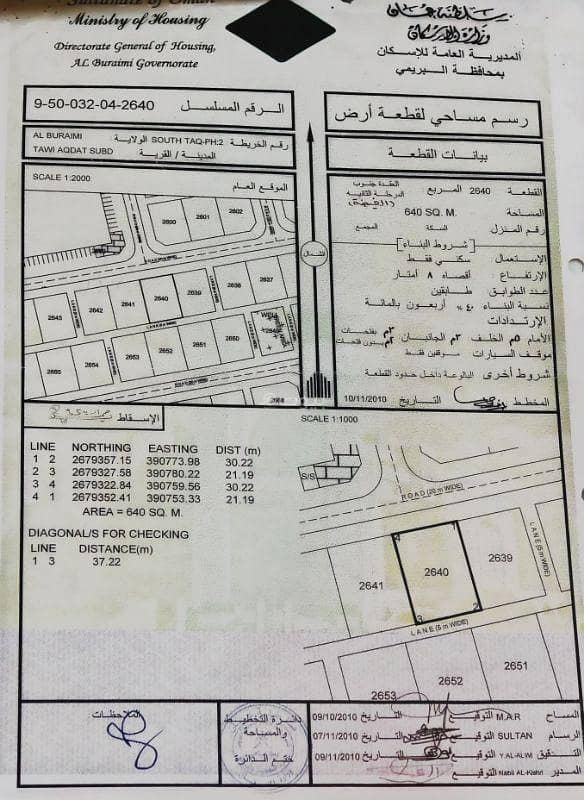 Sultanate of Oman
Ministry of Housing
Directorate General of Housing,
AL Buraimi Governorate
سلطنة عمان
وزارة الإسكان
المديرية العامة للإسكان
بمحافظة البريمي
9-50-032-04-2640 الرقم المسلسل
AL BURAIMI الولاية SOUTH TAQ-PH:2 رقم الخريطة
TAWI AQDAT SUBD المدينة / القرية
رسم مساحي لقطعة أرض
بيانات القطعة
SCALE 1:2000
الموقع العام
2600
2601
2602
2643
2642
2641
2640
2639
2638
2637
2655
2654
2653
2652
2651
2650
شمال
القطعة 2640 المربع
المرحلة الثانية
المساحة 640 SQ. M.
رقم المنزل السكة المجمع
شروط البناء
الإستعمال سكني فقط
الإرتفاع: أقصاه ٨ أمتار
عدد الطوابق طابقين
نسبة البناء ٤٠٪ أربعون بالمائة
الإرتدادات
الأمام ٥م الخلف ٣م الجانبان ٣م بفتحات
بدون فتحات
موقف السيارات موقفين فقط
شروط أخرى البالوعة داخل حدود القطعة
المخطط التاريخ 10/11/2010
الإسقاط
SCALE 1:1000
LINE NORTHING EASTING DIST (m)
1 2 2679357.15 390773.98 30.22
2 3 2679327.58 390780.22 21.19
3 4 2679322.84 390759.56 30.22
4 1 2679352.41 390753.33 21.19
AREA = 640 SQ. M.
DIAGONAL/S FOR CHECKING
LINE DISTANCE(m)
1 3 37.22
S/S
ROAD (20 m WIDE)
LANE (5 m WIDE)
2641
2640
2639
1
2
3
4
LANE (5 m WIDE)
2653
2652
2651
الملاحظات
دائرة التخطيط
والمساحة
ختم الدائرة
المساح M.A.R التوقيع التاريخ 09/10/2010
الرسام SULTAN التوقيع التاريخ 07/11/2010
التدقيق Y.AL-ALWI التوقيع التاريخ 09/11/2010
المدير Nabil AL-Kishri التوقيع التاريخ